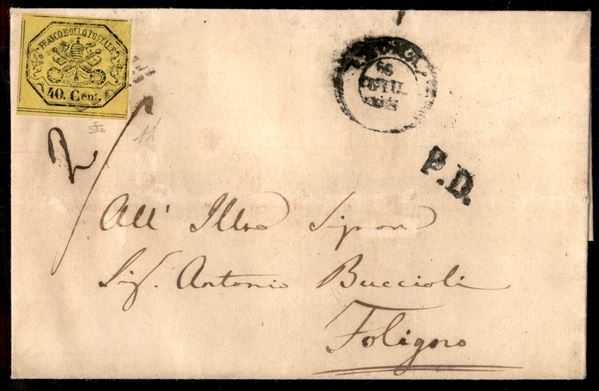 FRANCO BOLLO POSTALE
40 Cent.
P.D.
2
All' Illmo Signor
Sig. Antonio Buccioli
Foligno